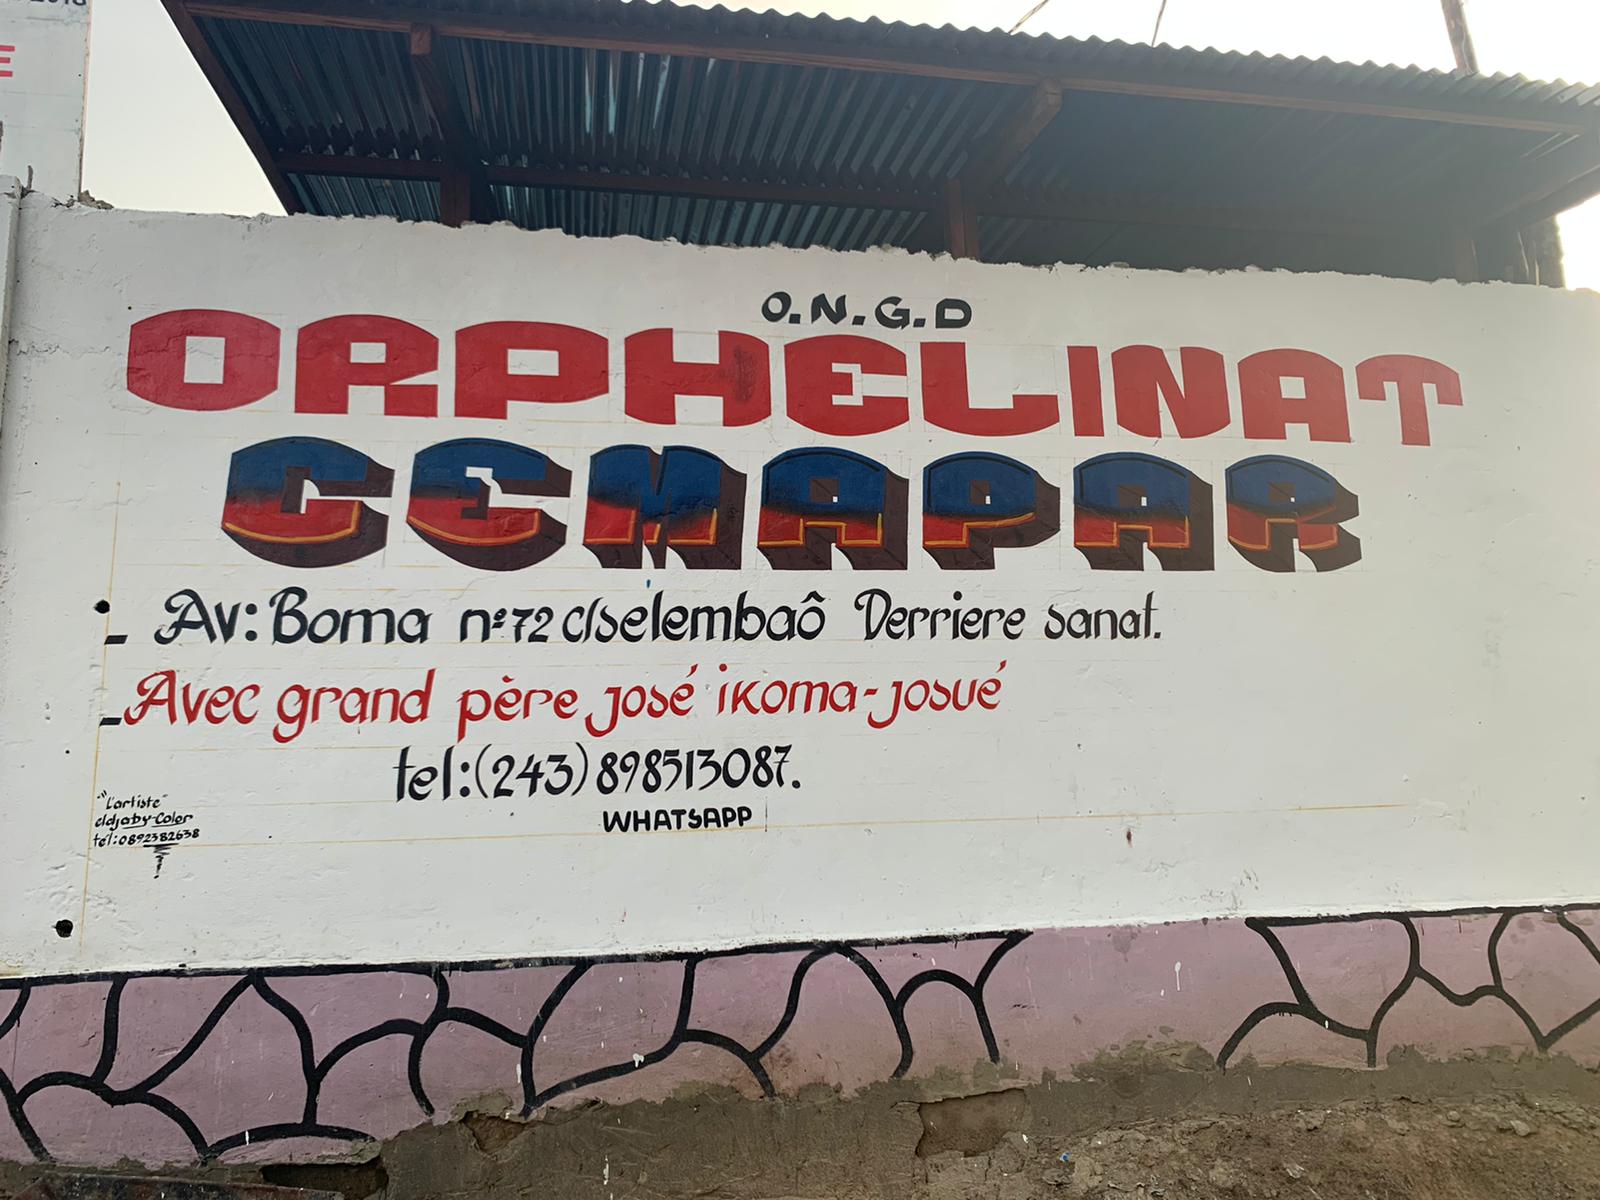 2018
E
O.N.G.D
ORPHELINAT
CEMAPAR
- Av: Boma n° 72 c/selembaô Derriere sanat.
- Avec grand père josé ikoma-josué
tel:(243) 898513087.
WHATSAPP
"L'artiste"
eldjaby-Color
tél: 0892382638